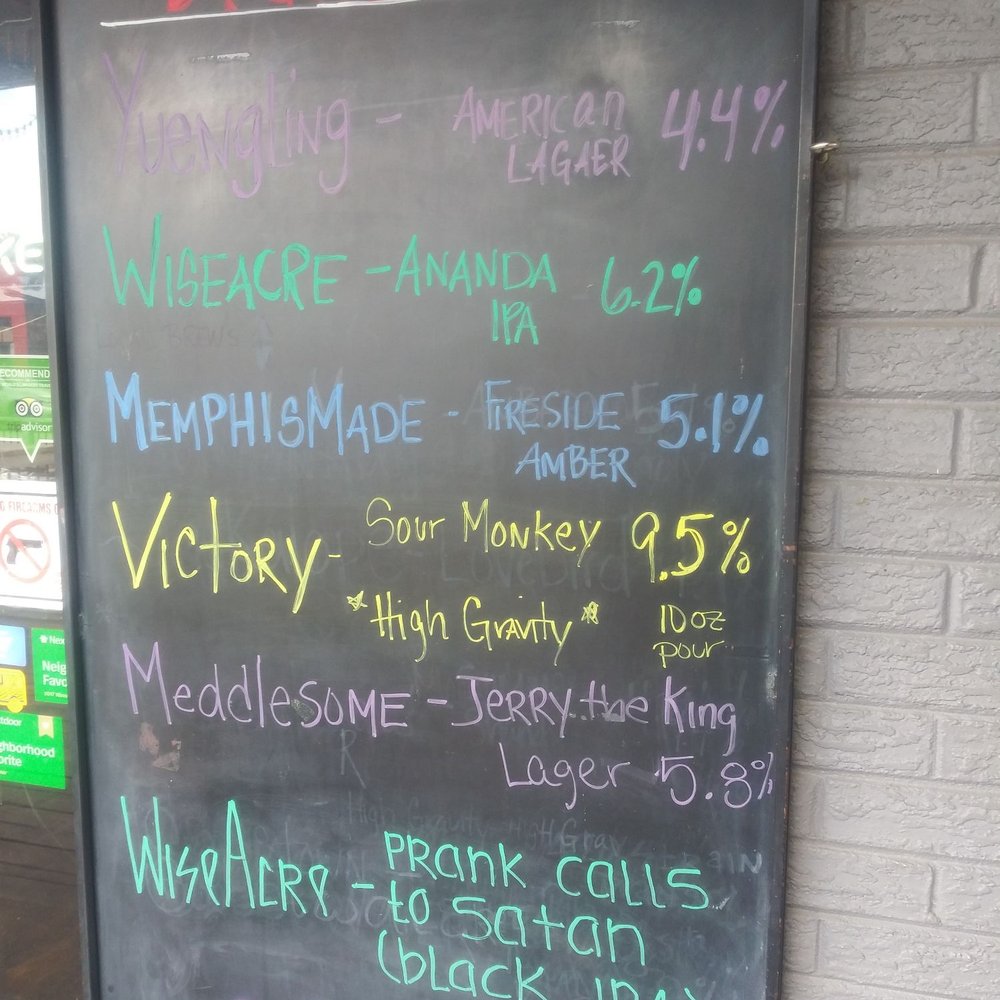 Yuengling - American 4.4%
Lagaer
Wiseacre - Ananda 6.2%
IPA
Memphis Made - Fireside 5.1%
Amber
Victory - Sour Monkey 9.5%
*High Gravity* 10oz
pour
Meddlesome - Jerry the King
Lager 5.8%
WiseAcre - Prank Calls
to Satan
(black IPA)
RE
ECOMMEND
advisor
FIREARMS
Nex
Neig
Favo
tdoor
ghborhood
orite